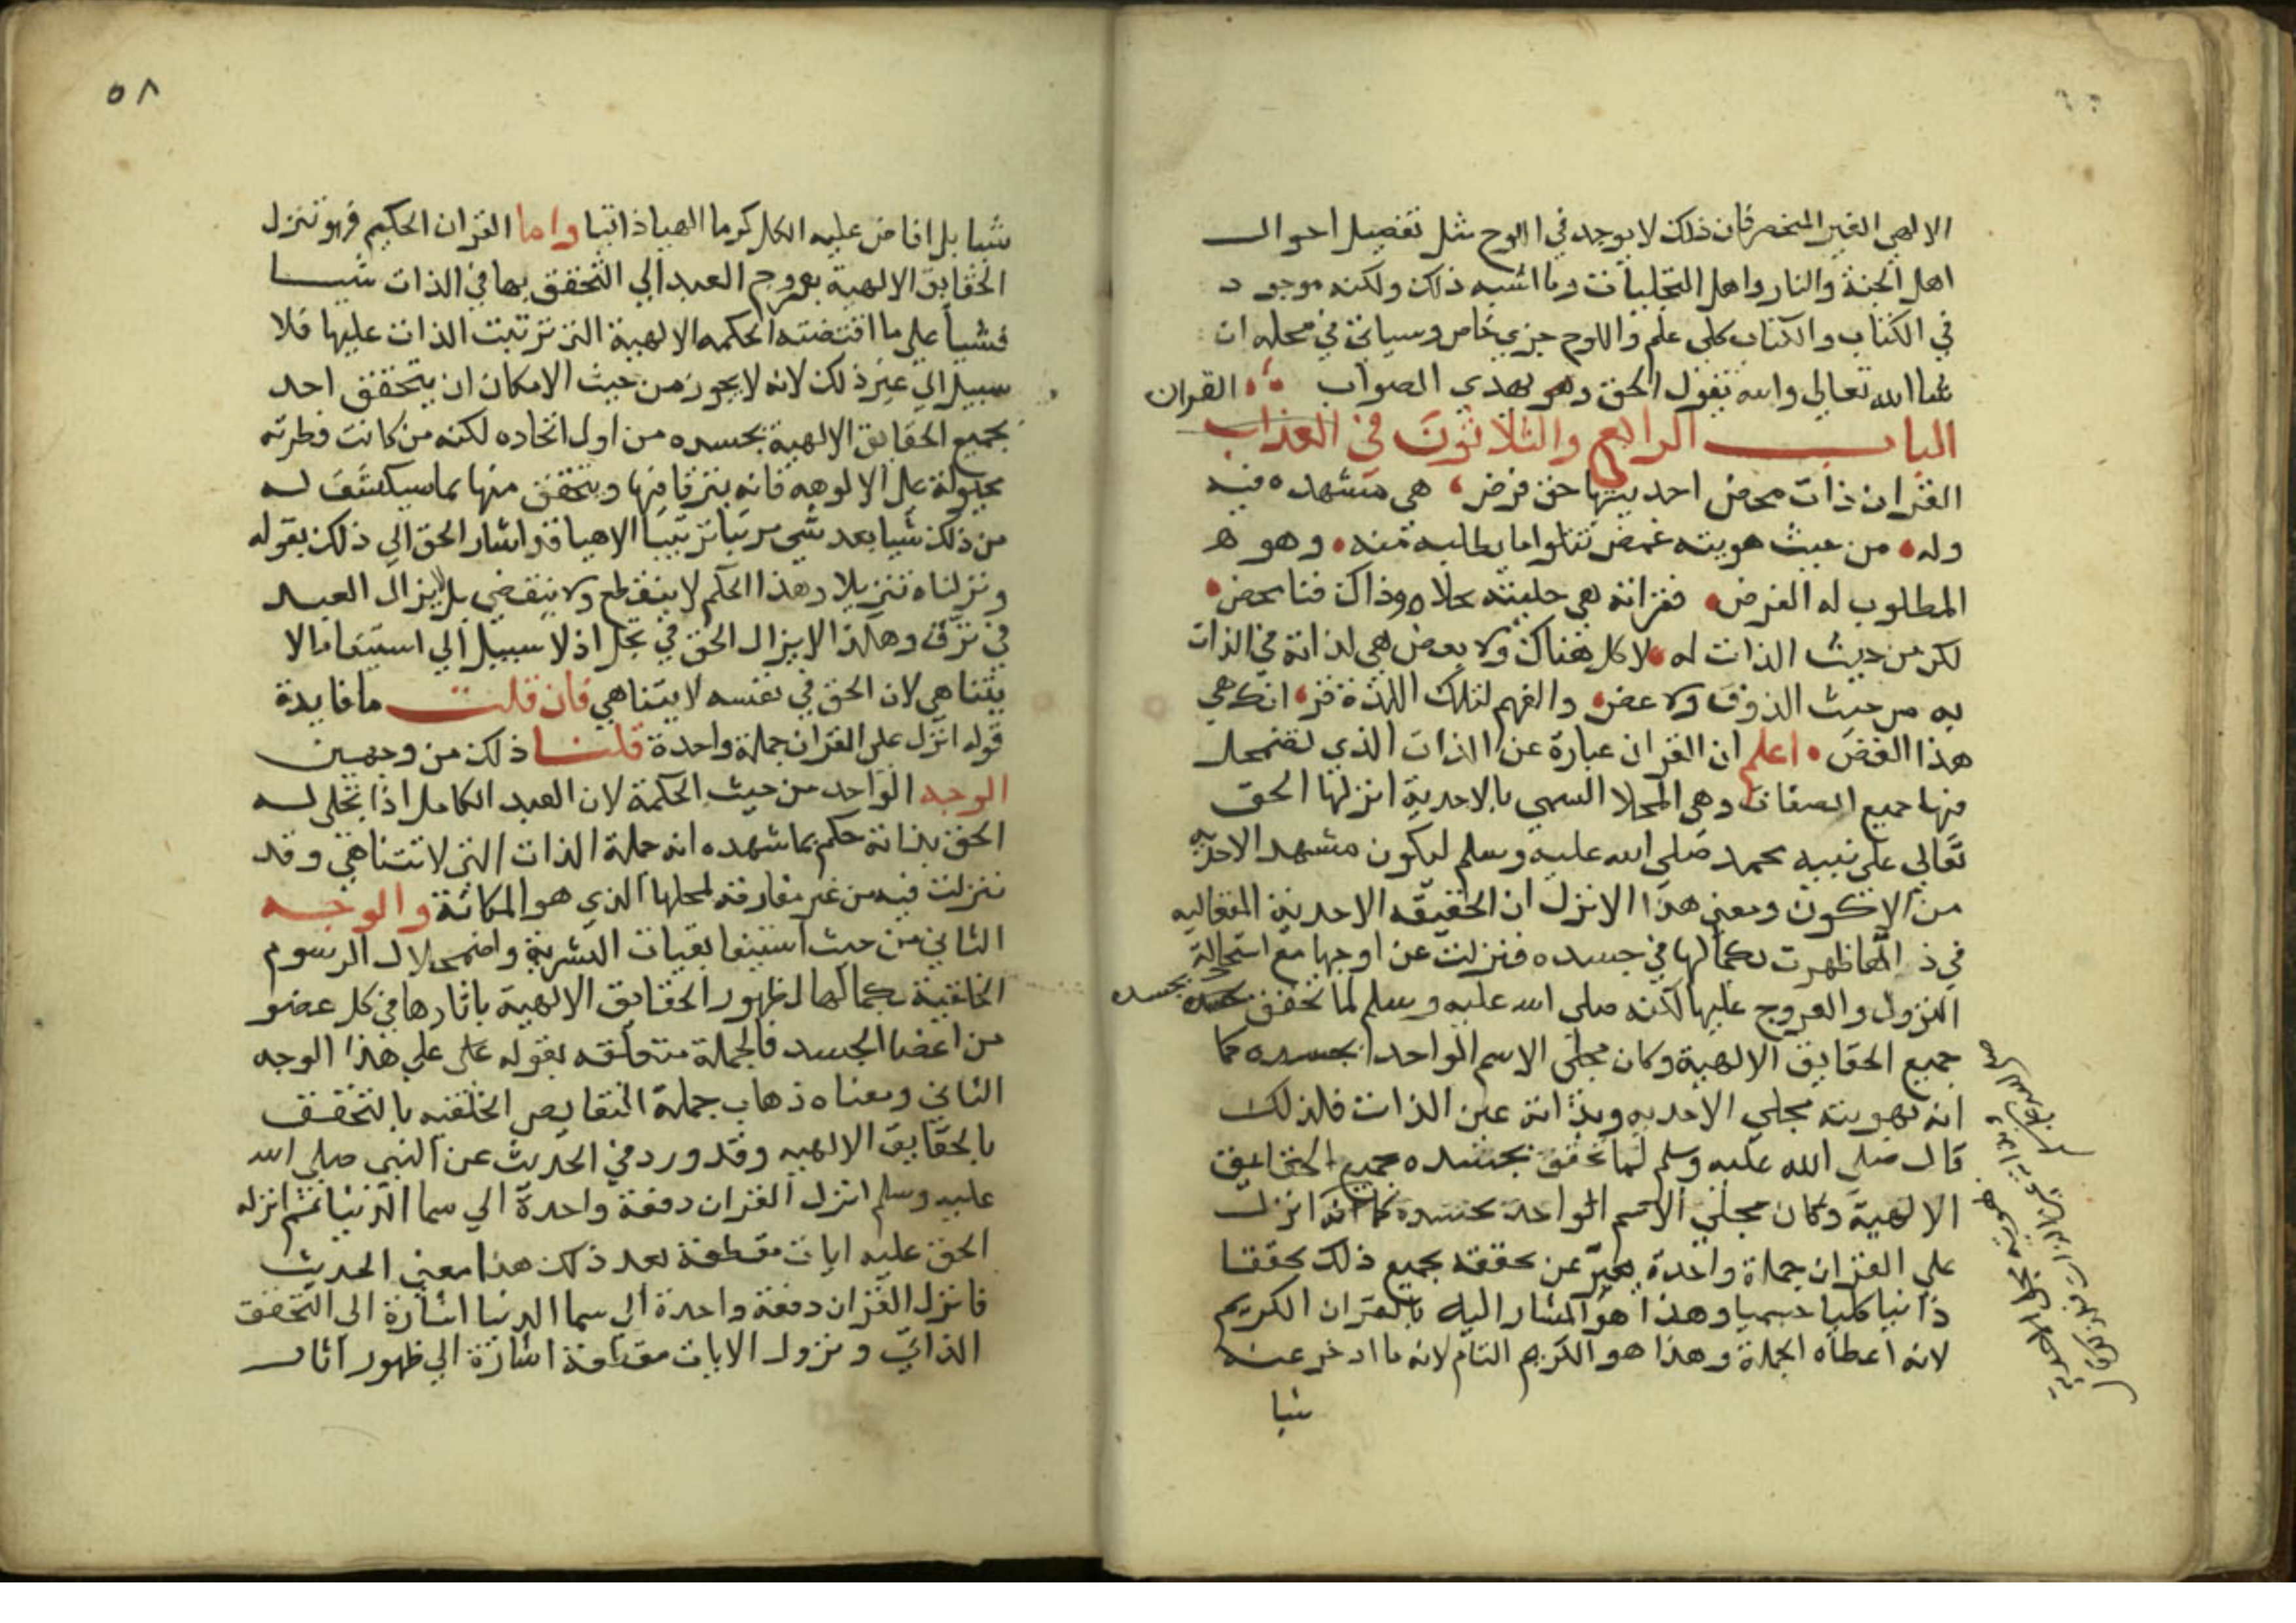 الالهي الغير المنحصر فان ذلك لا يوجد في اللوح مثل تفصيل احوال
اهل الجنة والنار واهل التجليات وما اشبه ذلك ولكنه موجود
في الكتاب والكتاب كلي علم واللوح جزي خاص وسياتي في محله ان
شا الله تعالى والله يقول الحق وهو يهدي الصواب القران
الباب الرابع والثلاثون في العذاب
القران ذات محض احديتها حق فرض هي مشهده فيه
وله من حيث هويته غمض تتلوا ما يطلبه منه وهو هـ
المطلوب له الغرض فقرانه هي حليته بحلاه وذاك فنا محض
لكن من حيث الذات له لا كل هناك ولا بعض هي لذاته في الذات
به من حيث الذوق ولا عض والفهم لتلك اللذة قر انك هي
هذا الغض اعلم ان القران عبارة عن الذات الذي تضمحل
فيها جميع الصفات وهي المجلا المسمى بالاحدية انزلها الحق
تعالى على نبيه محمد صلى الله عليه وسلم ليكون مشهد الاحديه
من الاكون ومعنى هذا الانزل ان الحقيقه الاحدية المتعاليه
في ذراها ظهرت بكمالها في جسده فنزلت عن اوجها مع استحالة
النزول والعروج عليها لكنه صلى الله عليه وسلم لما تحقق بجسده
جميع الحقايق الالهية وكان مجلى الاسم الواحد بجسده كما
انه بهويته مجلي الاحديه وبذاته عين الذات فلذلك
قال صلى الله عليه وسلم لما تحقق بجسده جميع الحقايق
الالهية وكان مجلي الاسم الواحد بجسده كما انه انزل
علي القران جملة واحدة يعبر عن تحققه بجميع ذلك تحققا
ذاتيا كليا جسميا وهذا هو المشار اليه بالقران الكريم
لانه اعطاه الجملة وهذا هو الكرم التام لانه ما ادخر عنه
شيا
هويته مجلى الاحدية
وبذاته عين الذات فلذلك قال
٥٨
شيا بل افاض عليه الكل كرما الهيا ذاتيا واما القران الحكيم فهو تنزل
الحقايق الالهية بعروج العبد الي التحقق بها في الذات شيا
فشيا علي ما اقتضته الحكمه الالهية التي ترتبت الذات عليها فلا
سبيل الي غير ذلك لانه لا يجوز من حيث الامكان ان يتحقق احد
بجميع الحقايق الالهية بجسده من اول اتحاده لكنه من كانت فطرته
مجبولة على الالوهه فانه يترقا فيها ويتحقق منها بما سيكشف له
من ذلك شيا بعد شي مرتبا ترتيبا الاهيا قد اشار الحق الي ذلك بقوله
ونزلناه تنزيلا وهذا الحكم لا ينقطع ولا ينقضي بل لا يزال العبد
في ترق وهكذا لا يزال الحق في تجل اذ لا سبيل الي استيفا ما لا
يتناهي لان الحق في نفسه لا يتناهي فان قلت ما فايدة
قوله انزل علي القران جملة واحدة قلنا ذلك من وجهين
الوجه الواحد من حيث الحكمة لان العبد الكامل اذا تجلى له
الحق بذاته حكم بما شهده انه جملة الذات التي لا تتناهي وقد
تنزلت فيه من غير مفارقة لمحلها الذي هو المكانة والوجه
الثاني من حيث استيفا بقيات البشرية واضمحلال الرسوم
الخلقية بكمالها لظهور الحقايق الالهية باثارها في كل عضو
من اعضا الجسد فالجملة متعلقه بقوله على علي هذا الوجه
الثاني ومعناه ذهاب جملة النقايص الخلقيه بالتحقق
بالحقايق الالهيه وقد ورد في الحديث عن النبي صلى الله
عليه وسلم انزل القران دفعة واحدة الي سما الدنيا ثم انزله
الحق عليه ايات مقطعة بعد ذلك هذا معنى الحديث
فانزل القران دفعة واحدة الى سما الدنيا اشارة الى التحقق
الذاتي ونزول الايات مقطعة اشارة الي ظهور اثار